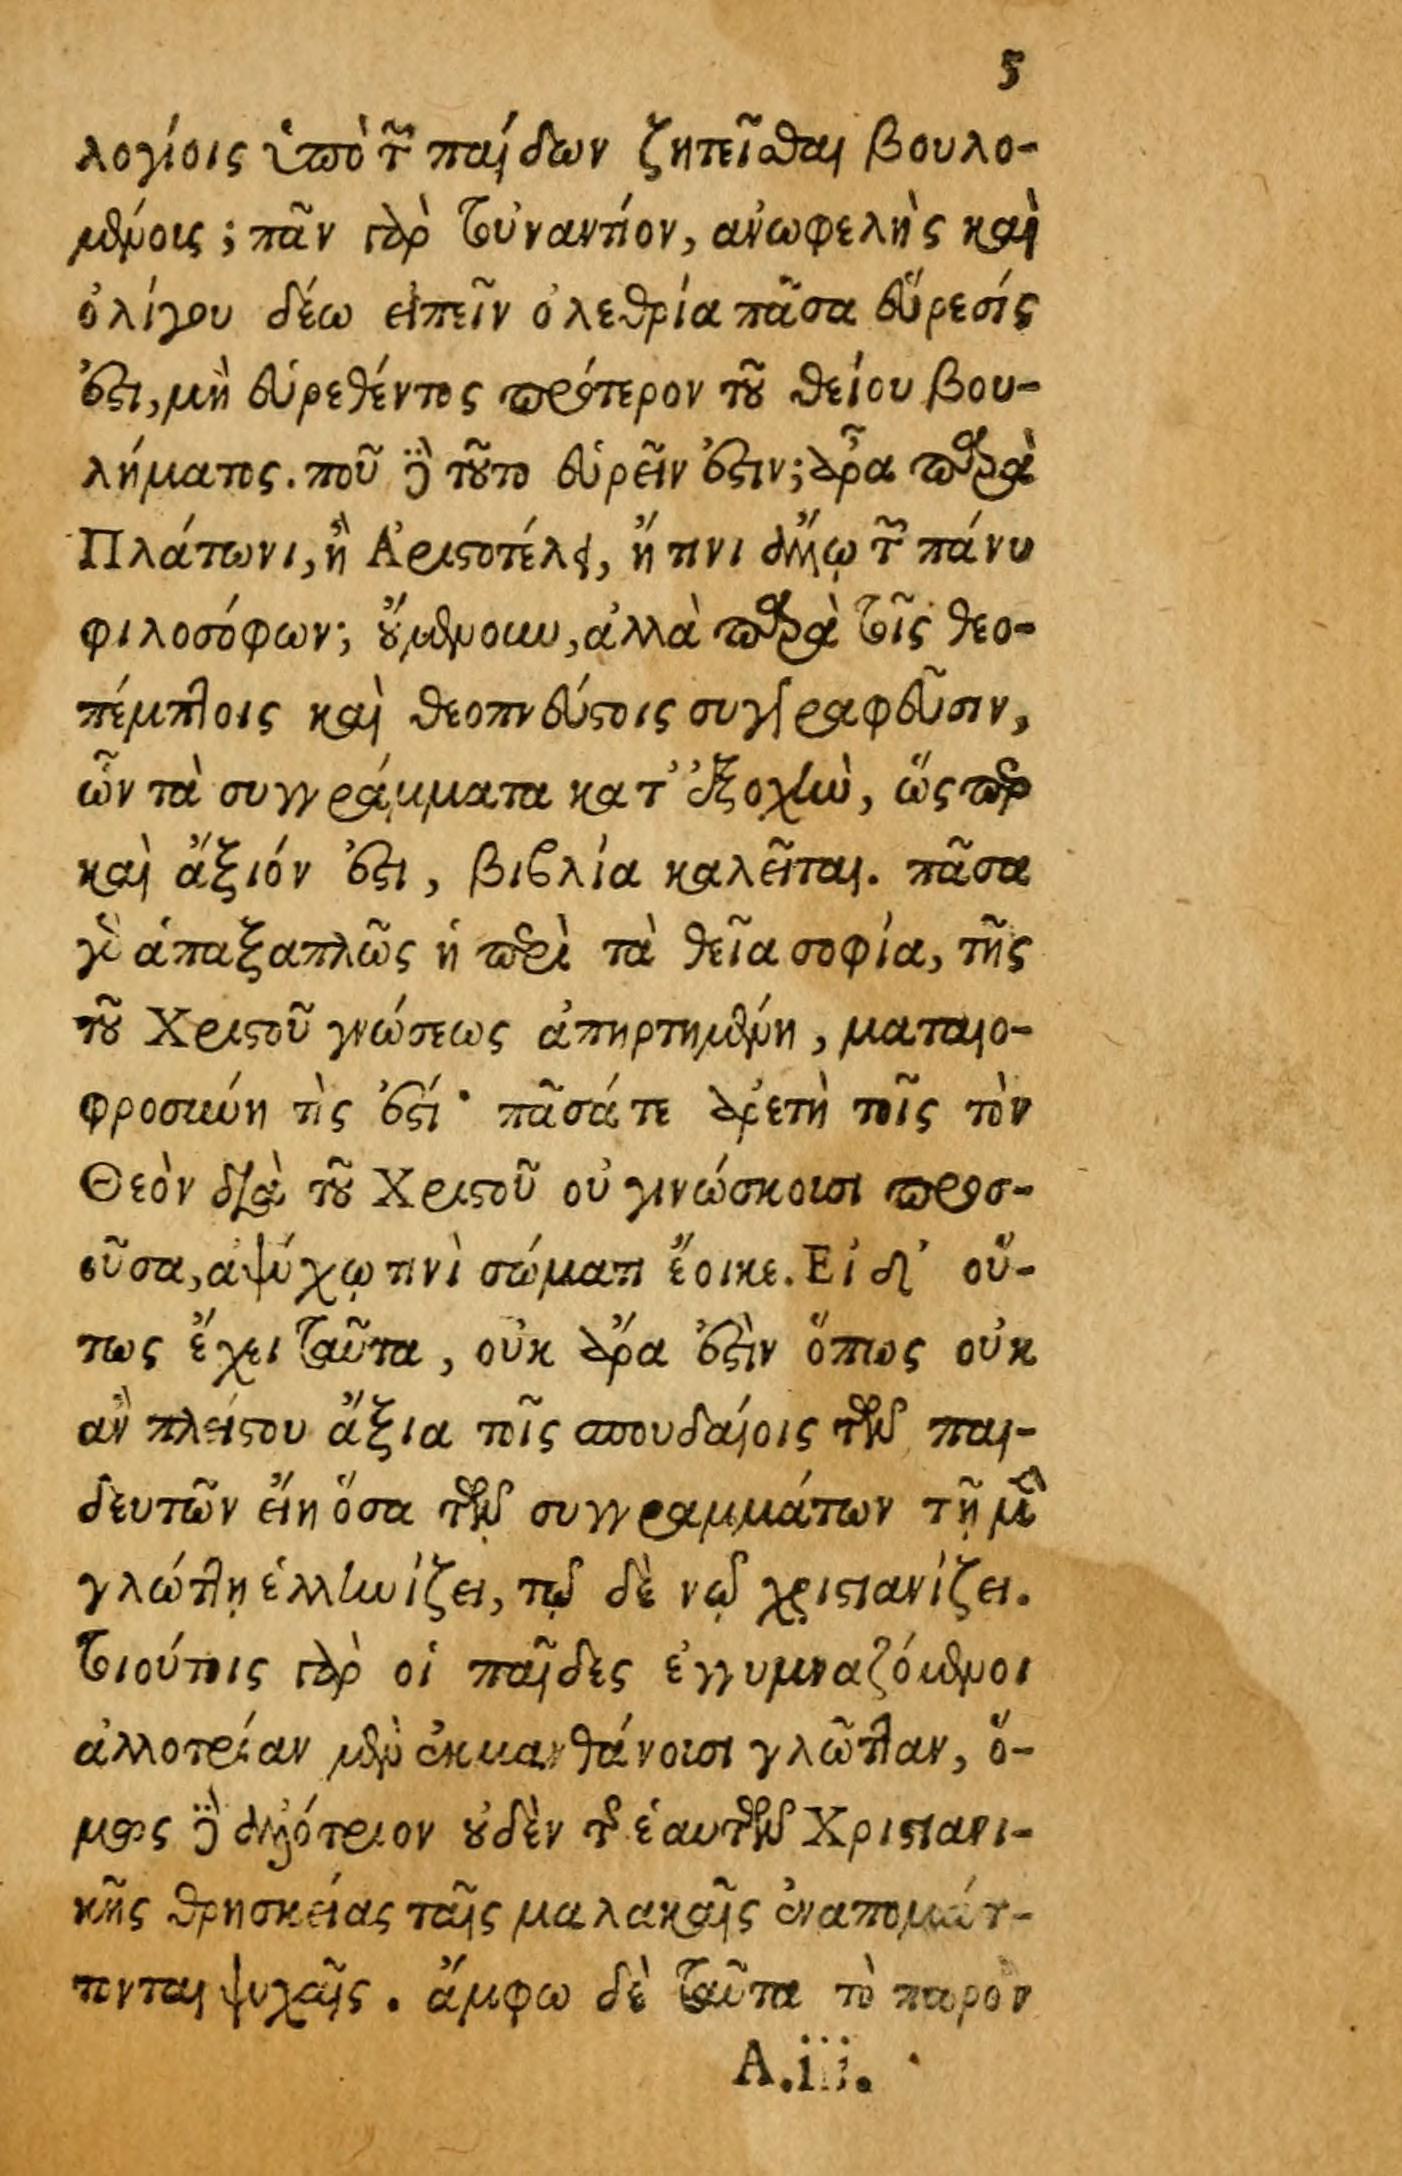 5
λογίοις ὑπὸ τῶν παίδων ζητεῖσθαι βουλο-
μένοις; πᾶν γὰρ τὐναντίον, ανωφελὴς καὶ
ὀλίγου δέω εἰπεῖν ὀλεθρία πᾶσα εὕρεσίς
ἐστι, μὴ εὑρεθέντος πρότερον τοῦ θείου βου-
λήματος. ποῦ δὲ τοῦτο εὑρεῖν ἐστιν; ἆρα παρὰ
Πλάτωνι, ἢ Ἀριστοτέλει, ἤ τινι ἄλλῳ τῶν πάνυ
φιλοσόφων; οὔμενουν, ἀλλὰ παρὰ τοῖς θεο-
πέμπτοις καὶ θεοπνεύστοις συγγραφεῦσιν,
ὧν τὰ συγγράμματα κατ' ἐξοχὴν, ὥσπερ
καὶ ἄξιόν ἐστι, βιβλία καλεῖται. πᾶσα
γὰρ ἁπαξαπλῶς ἡ περὶ τὰ θεῖα σοφία, τῆς
τοῦ Χριστοῦ γνώσεως ἀπηρτημένη, ματαιο-
φροσύνη τὶς ἐστί· πᾶσά τε ἀρετὴ τοῖς τὸν
Θεὸν διὰ τοῦ Χριστοῦ οὐ γινώσκουσι προσ-
οῦσα, ἀψύχῳ τινὶ σώματι ἔοικε. Εἰ δ' οὕ-
τως ἔχει ταῦτα, οὐκ ἄρα ἐστὶν ὅπως οὐκ
ἂν πλείστου ἄξια τοῖς σπουδαίοις τῶν παι-
δευτῶν εἴη ὅσα τῶν συγγραμμάτων τῇ μὲν
γλώττῃ ἑλληνίζει, τῷ δὲ νῷ χριστιανίζει.
τοιούτοις γὰρ οἱ παῖδες ἐγγυμναζόμενοι
ἀλλοτρίαν μὲν ἐκμανθάνουσι γλῶτταν, ὅ-
μως δὲ ἀλλότριον οὐδὲν τῆς ἑαυτῶν Χριστιανι-
κῆς θρησκείας ταῖς μαλακαῖς ἐναπομάτ-
τονται ψυχαῖς. ἄμφω δὲ ταῦτα τὸ παρὸν
A.iii.